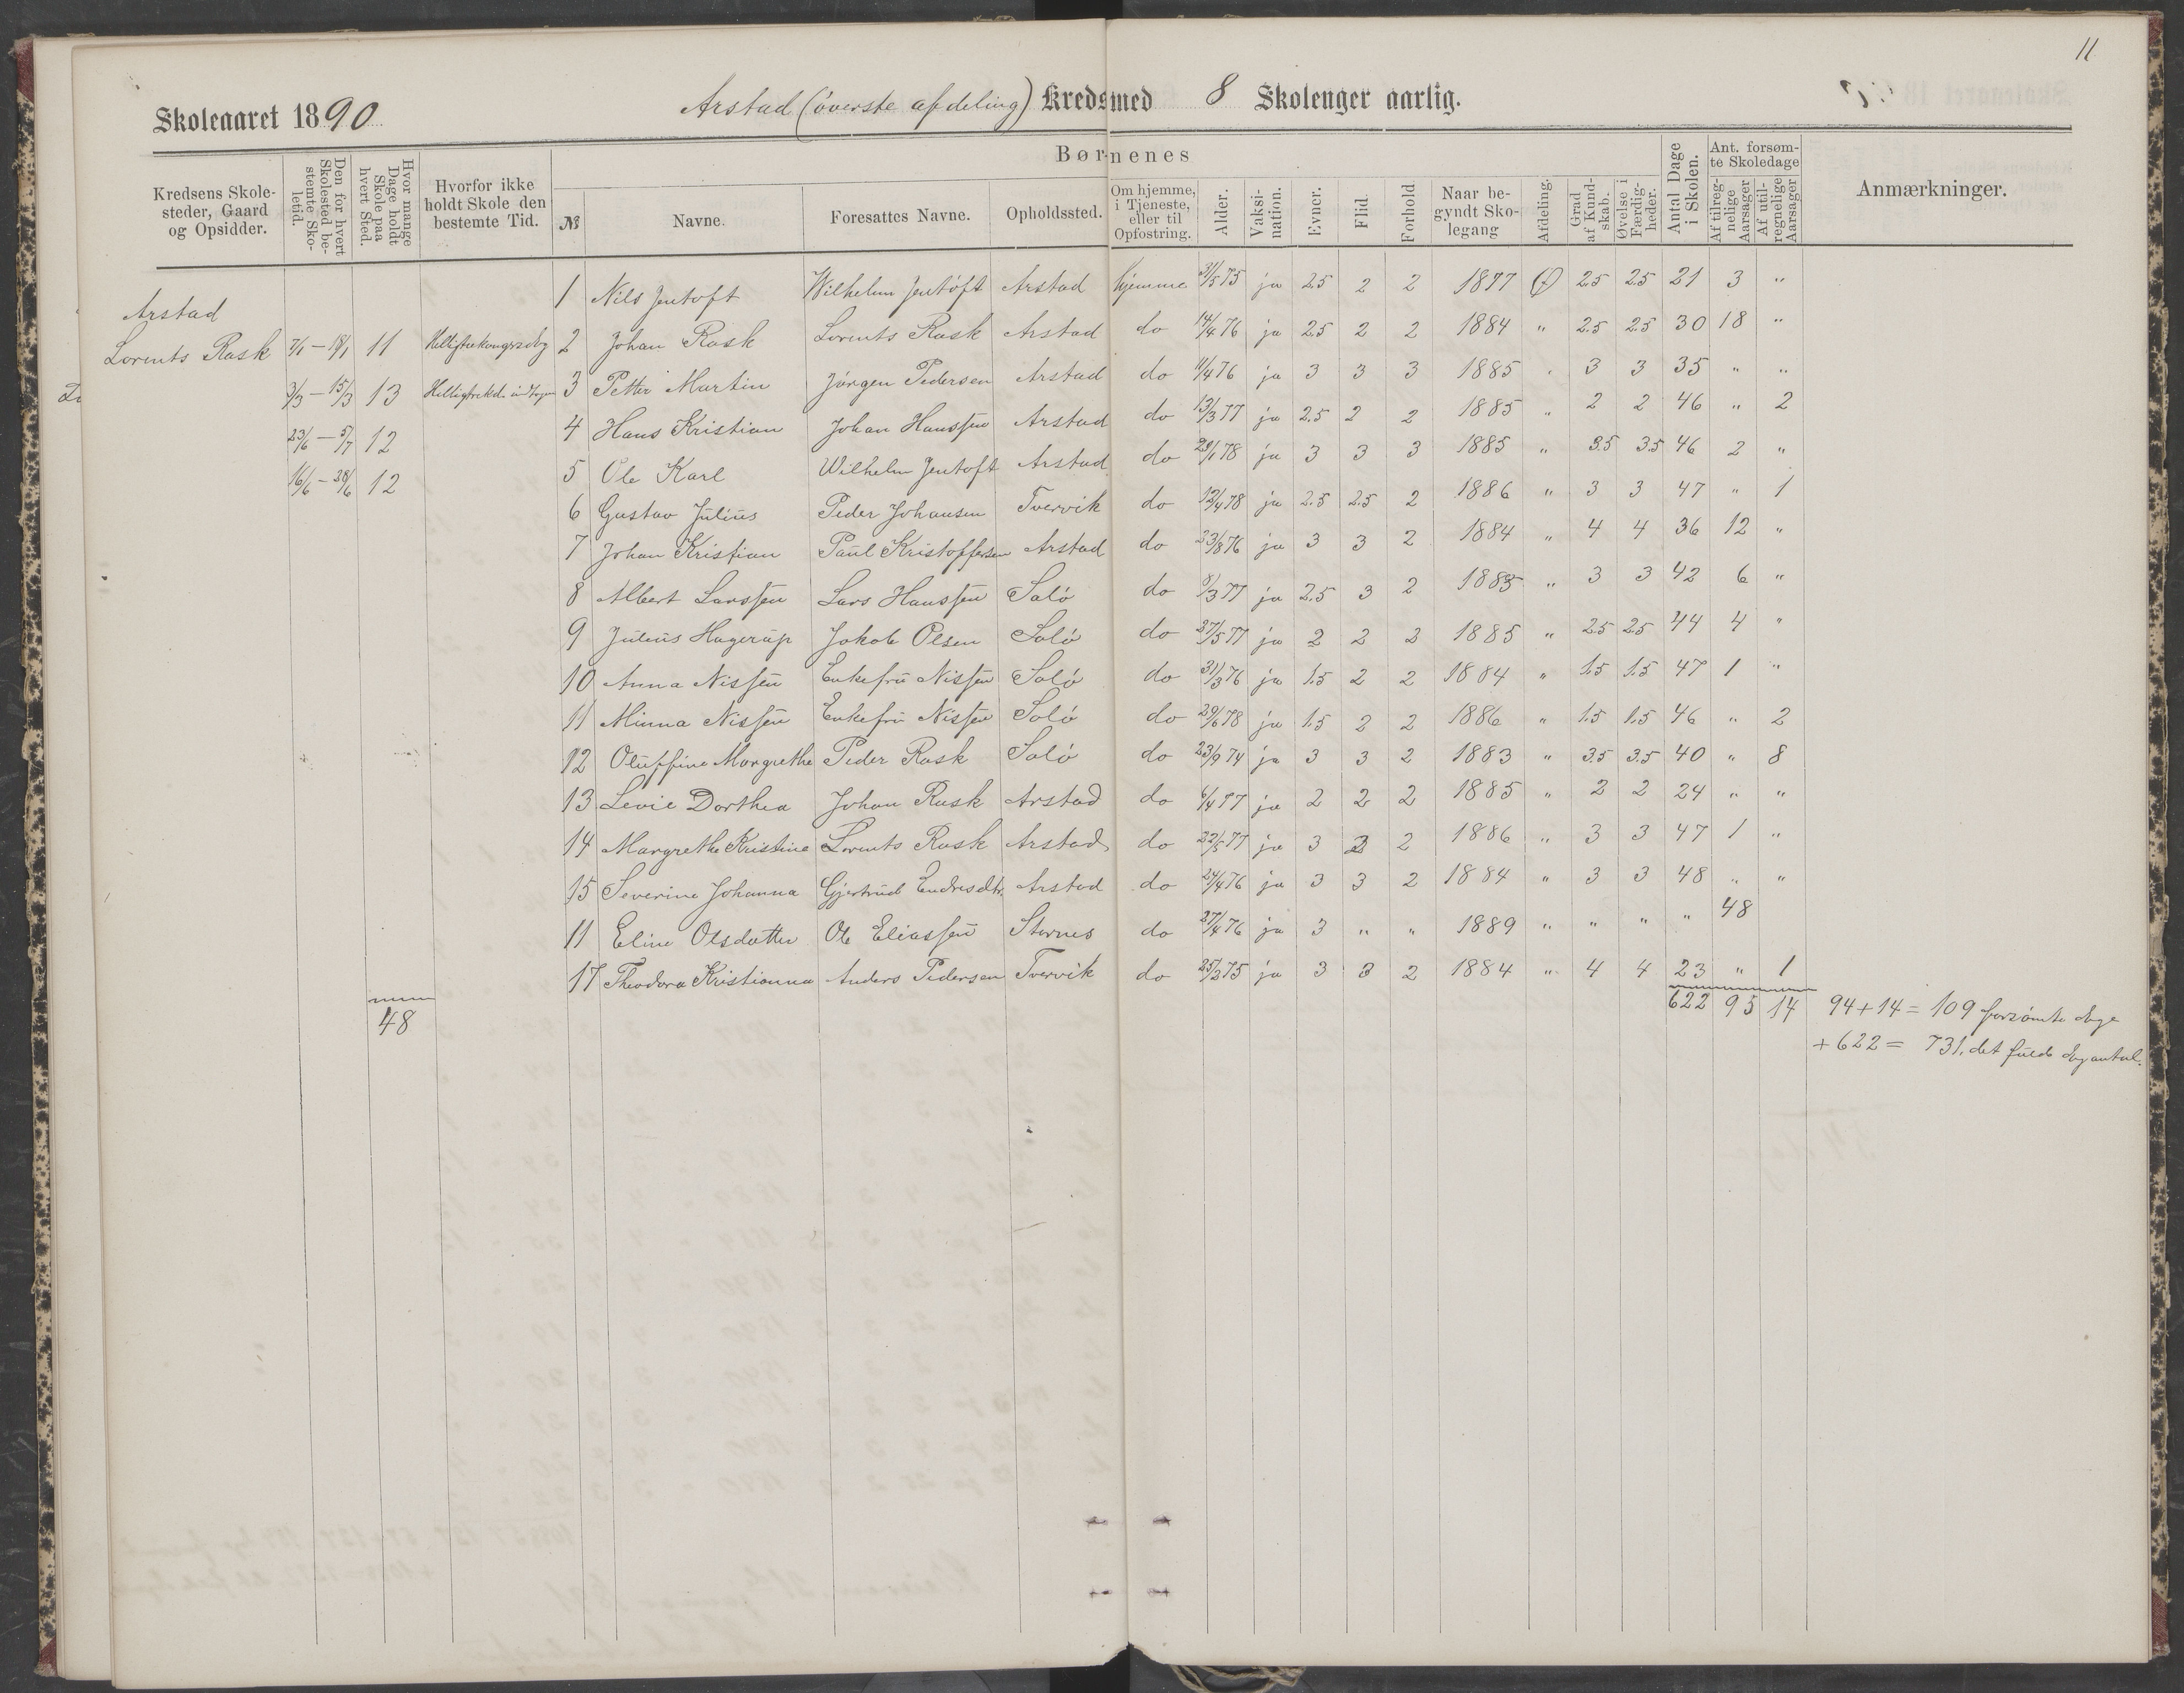 11
Skoleaaret 1890 Arstad (överste afdeling) Kreds med 8 Skolenger aarlig.
Børnenes
Kredsens Skolesteder, Gaard og Opsidder.
Den for hvert Skolested bestemte Skoletid.
Hvor mange Dage holdt Skole paa hvert Sted.
Hvorfor ikke holdt Skole den bestemte Tid.
№
Navne.
Foresattes Navne.
Opholdssted.
Om hjemme, i Tjeneste, eller til Opfostring.
Alder.
Vaksination.
Evner.
Flid.
Forhold
Naar begyndt Skolegang
Afdeling.
Grad af Kundskab.
Øvelse i Færdigheder.
Antal Dage i Skolen.
Ant. forsømte Skoledage
Af tilregnelige Aarsager
Af utilregnelige Aarsager
Anmærkninger.
Arstad
Lorents Rask 7/1 – 18/1 11
3/3 – 15/3 13
23/6 – 5/7 12
16/6 – 28/6 12
48
1 Nils Jentoft Wilhelm Jentoft Arstad hjemme 31/5 75 ja 2.5 2 2 1877 2.5 2.5 21 3 "
2 Johan Rask Lorents Rask Arstad do 14/4 76 ja 2.5 2 2 1884 " 2.5 2.5 30 18 "
3 Petter Martin Jörgen Pedersen Arstad do 11/4 76 ja 3 3 3 1885 " 3 3 35 " "
4 Hans Kristian Johan Hanssen Arstad do 13/3 77 ja 2.5 2 2 1885 " 2 2 46 " 2
5 Ole Karl Wilhelm Jentoft Arstad do 29/1 78 ja 3 3 3 1885 " 3.5 3.5 46 2 "
6 Gustav Julius Peder Johansen Tvervik do 12/4 78 ja 2.5 2.5 2 1886 " 3 3 47 " 1
7 Johan Kristian Paul Kristoffersen Arstad do 23/8 76 ja 3 3 2 1884 " 4 4 36 12 "
8 Albert Larssen Lars Hanssen Salö do 8/3 77 ja 2.5 3 2 1885 " 3 3 42 6 "
9 Julius Hagerup Jakob Olsen Salö do 27/5 77 ja 2 2 2 1885 " 2.5 2.5 44 4 "
10 Anna Nissen Enkefru Nissen Salö do 31/3 76 ja 1.5 2 2 1884 " 1.5 1.5 47 1 "
11 Minna Nissen Enkefru Nissen Salö do 29/6 78 ja 1.5 2 2 1886 " 1.5 1.5 46 " 2
12 Oluffine Margrethe Peder Rask Salö do 23/9 74 ja 3 3 2 1883 " 3.5 3.5 40 " 8
13 Levie Dorthea Johan Rask Arstad do 6/4 77 ja 2 2 2 1885 " 2 2 24 " "
14 Margrethe Kristine Lorents Rask Arstad do 22/5 77 ja 3 3 2 1886 " 3 3 47 1 "
15 Severine Johanna Gjertrud Endresdtr. Arstad do 24/4 76 ja 3 3 2 1884 " 3 3 48 " "
11 Eline Olsdatter Ole Eliassen Stornes do 27/4 76 ja 3 " " 1889 " " " " 48
17 Theodora Kristianna Anders Pedersen Tvervik do 25/2 75 ja 3 3 2 1884 " 4 4 23 " 1
622 95 14 94+14 = 109 forsömte dage
+ 622 = 731, det fulde dagantal.